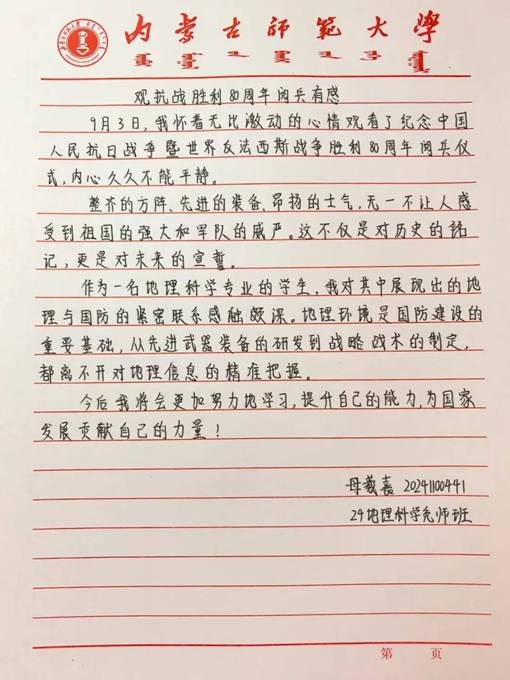 内蒙古师范大学
观抗战胜利80周年阅兵有感
9月3日,我怀着无比激动的心情观看了纪念中国
人民抗日战争暨世界反法西斯战争胜利80周年阅兵仪
式,内心久久不能平静。
整齐的方阵、先进的装备、昂扬的士气,无一不让人感
受到祖国的强大和军队的威严。这不仅是对历史的铭
记,更是对未来的宣誓。
作为一名地理科学专业的学生,我对其中展现出的地
理与国防的紧密联系感触颇深。地理环境是国防建设的
重要基础,从先进武器装备的研发到战略战术的制定,
都离不开对地理信息的精准把握。
今后我将会更加努力地学习,提升自己的能力,为国家
发展贡献自己的力量!
母羲嘉 20241100441
24地理科学优师班
第 页